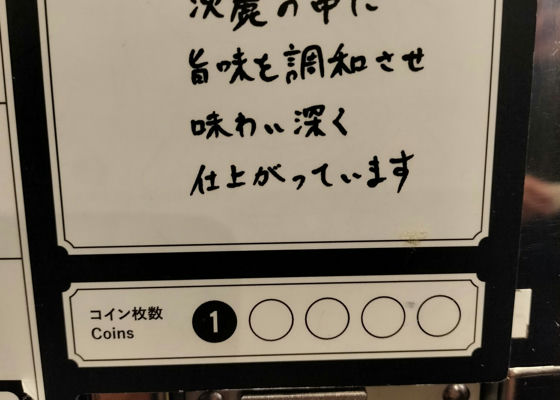 淡麗の中に
旨味を調和させ
味わい深く
仕上がっています
コイン枚数
Coins
1